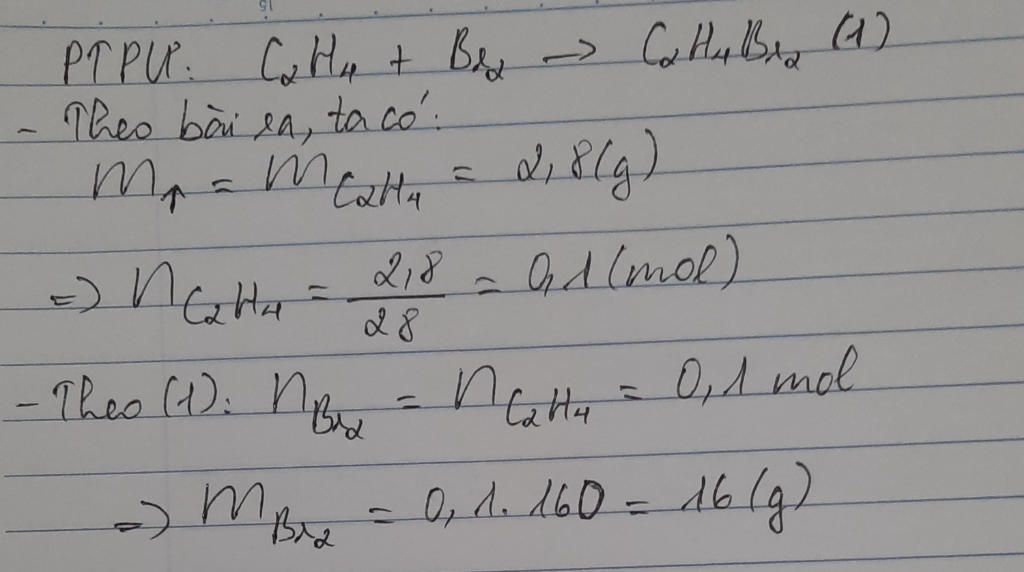 PTPƯ: C₂H₄ + Br₂ → C₂H₄Br₂ (1)
- Theo bài ra, ta có:
m↑ = m C₂H₄ = 2,8(g)
=> n C₂H₄ = 2,8/28 = 0,1(mol)
- Theo (1): n Br₂ = n C₂H₄ = 0,1 mol
=> m Br₂ = 0,1.160 = 16(g)